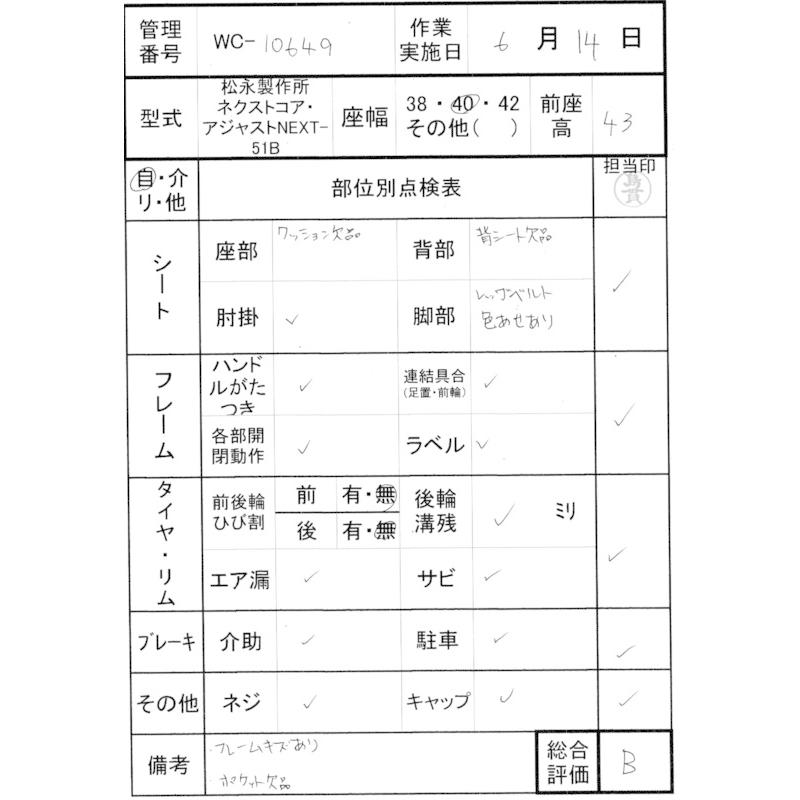 管理番号 WC-10649 作業実施日 6月14日
型式 松永製作所 ネクストコア・アジャストNEXT-51B 座幅 38・40・42 その他( ) 前座高 43
自・介 リ・他 部位別点検表 担当印
シート 座部 クッション欠品 背部 背シート欠品 ✓
肘掛 ✓ 脚部 レッグベルト 色あせあり
フレーム ハンドルがたつき ✓ 連結具合 (足置・前輪) ✓ ✓
各部開閉動作 ✓ ラベル ✓
タイヤ・リム 前後輪ひび割 前 有・無 後輪溝残 ✓ ミリ ✓
後 有・無
エア漏 ✓ サビ ✓
ブレーキ 介助 ✓ 駐車 ✓ ✓
その他 ネジ ✓ キャップ ✓ ✓
備考 ・フレームキズあり 総合評価 B
・ポケット欠品